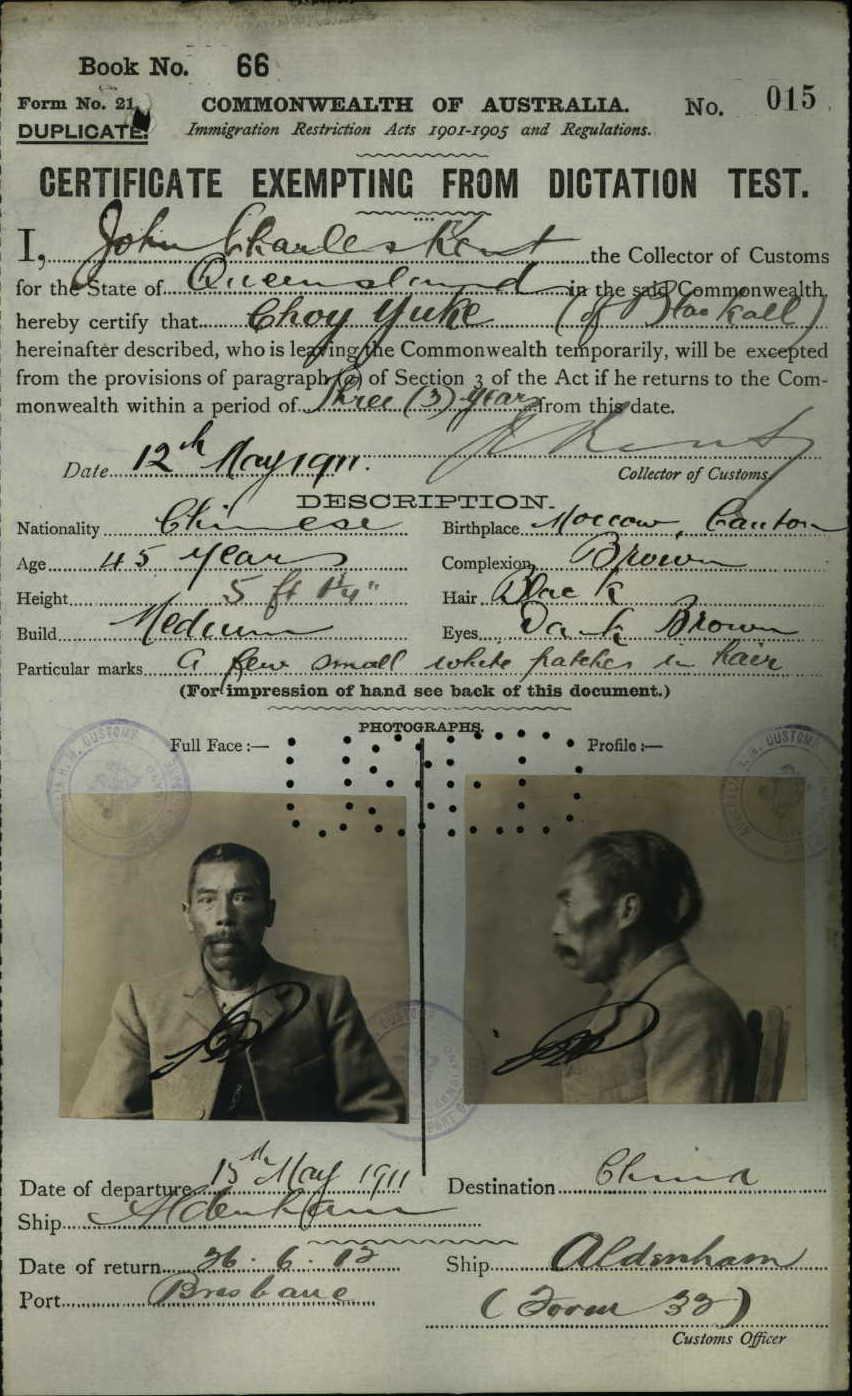 Book No. 66
Form No. 21. COMMONWEALTH OF AUSTRALIA. No. 015
DUPLICATE. Immigration Restriction Acts 1901-1905 and Regulations.
CERTIFICATE EXEMPTING FROM DICTATION TEST.
I, John Charles Kent the Collector of Customs
for the State of Queensland in the said Commonwealth,
hereby certify that Choy Yuke (of Blackall)
hereinafter described, who is leaving the Commonwealth temporarily, will be excepted
from the provisions of paragraph (a) of Section 3 of the Act if he returns to the Com-
monwealth within a period of Three (3) years from this date.
Date 12th May 1911. J C Kent
Collector of Customs,
DESCRIPTION.
Nationality Chinese Birthplace Moccow, Canton
Age 45 years Complexion Brown
Height 5 ft 1¼" Hair Black
Build Medium Eyes Dark Brown
Particular marks A few small white patches in hair
(For impression of hand see back of this document.)
PHOTOGRAPHS.
Full Face :— Profile :—
Date of departure 15th May 1911 Destination China
Ship Aldenham
Date of return 26.6.12 Ship Aldenham
Port Brisbane (Form 32)
Customs Officer